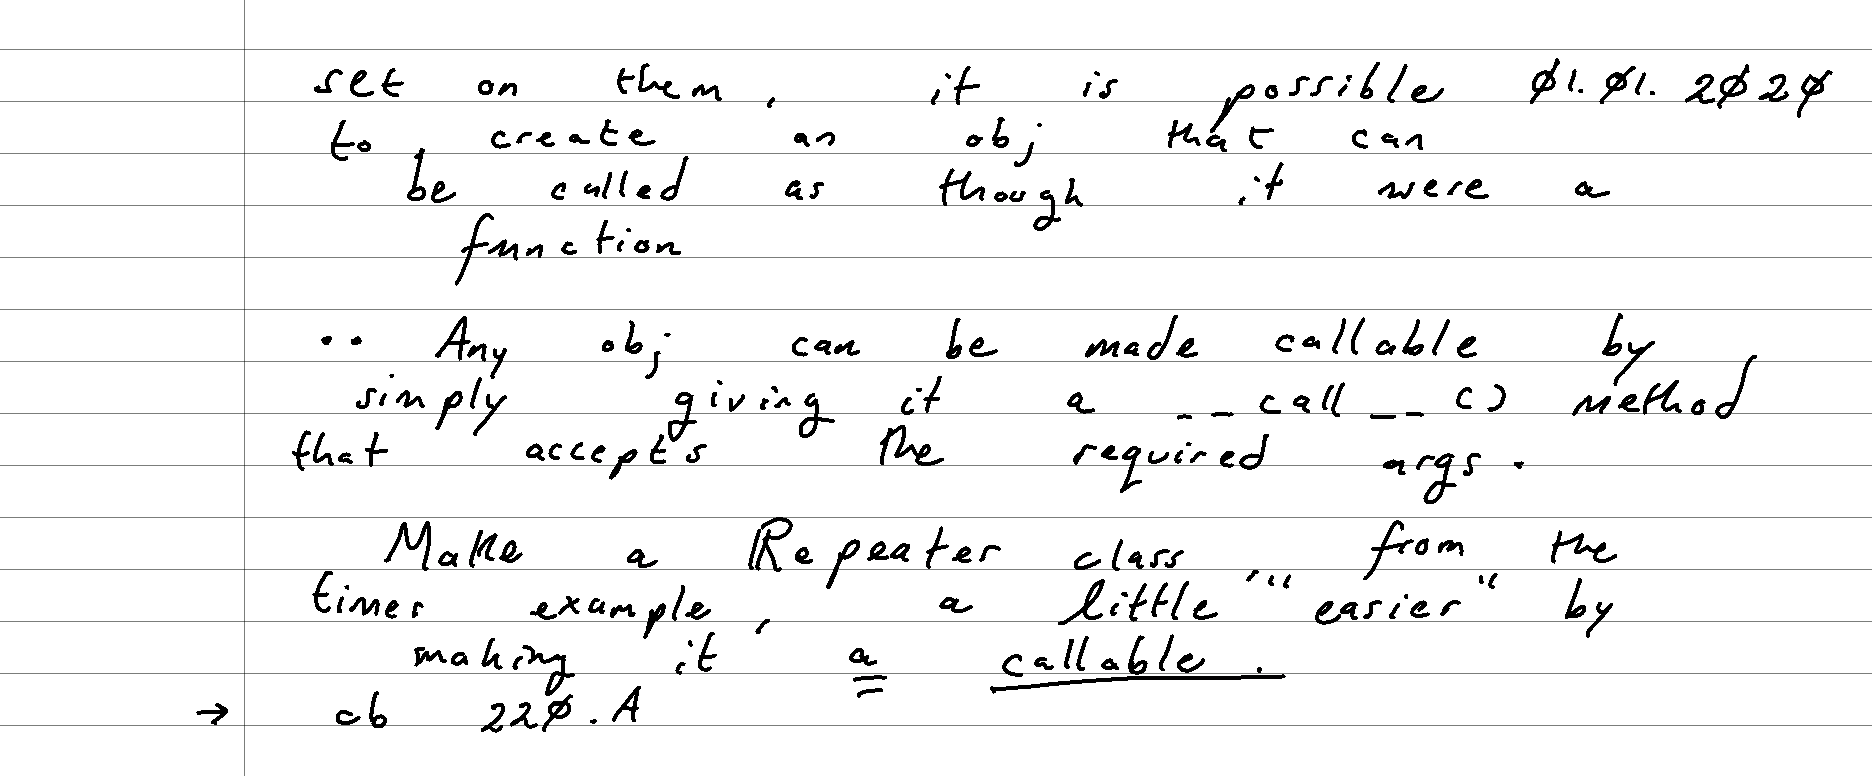 set on them, it is possible 01.01.2020
to create an obj that can
be called as though it were a
function
.. Any obj can be made callable by
simply giving it a __call__() method
that accepts the required args.
Make a Repeater class, from the
times example, a little "easier" by
making it a callable.
→ cb 220.A